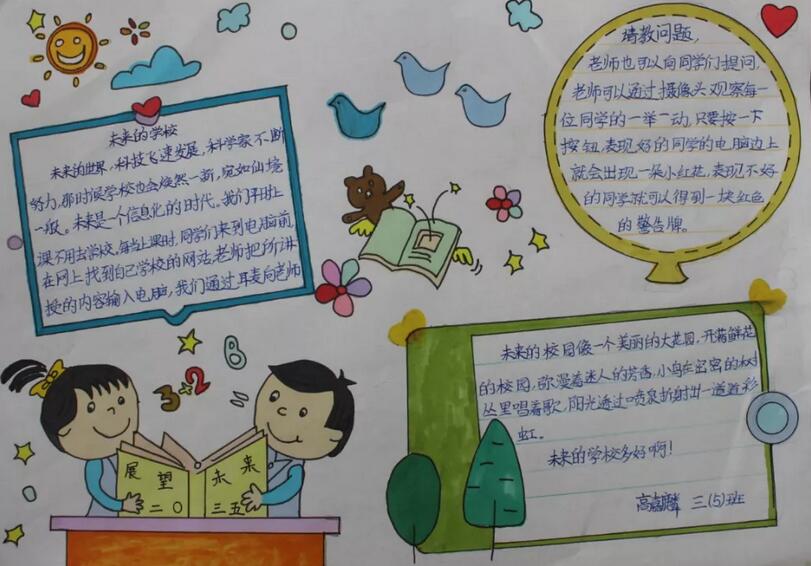 未来的学校
未来的世界，科技飞速发展，科学家不断
努力，那时候学校也会焕然一新，宛如仙境
一般。未来是个信息化的时代。我们平时上
课不用去学校，每当上课时，同学们来到电脑前，
在网上找到自己学校的网站，老师把所讲
授的内容输入电脑，我们通过耳麦向老师
请教问题，
老师也可以向同学们提问，
老师可以通过摄像头观察每一
位同学的一举一动，只要按一下
按钮，表现好的同学的电脑边上
就会出现一朵小红花，表现不好
的同学就可以得到一块红色
的警告牌。
3+2
8
展望未来
二〇三五
未来的校园像一个美丽的大花园，开满鲜花
的校园，弥漫着迷人的芳香，小鸟在密密的树
丛里唱着歌，阳光透过喷泉折射出一道道彩
虹。
未来的学校多好啊！
高嘉麟 三(5)班